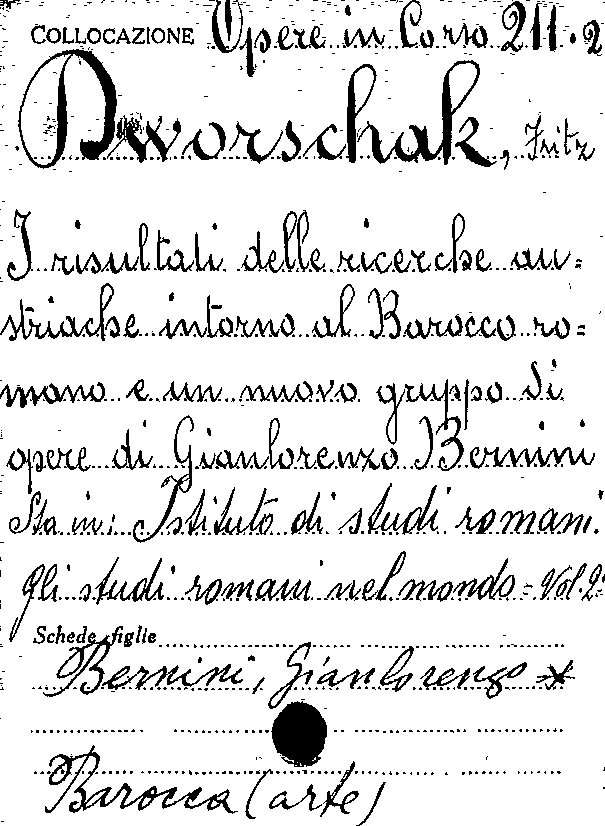 COLLOCAZIONE Opere in Corso 211.2
Dworschak, Fritz
I risultati delle ricerche au=
striache intorno al Barocco ro=
mano e un nuovo gruppo di
opere di Gianlorenzo Bernini
Sta in: Istituto di studi romani.
Gli studi romani nel mondo = Vol. 2º
Schede figlie
Bernini, Gianlorenzo *
Barocca (arte)